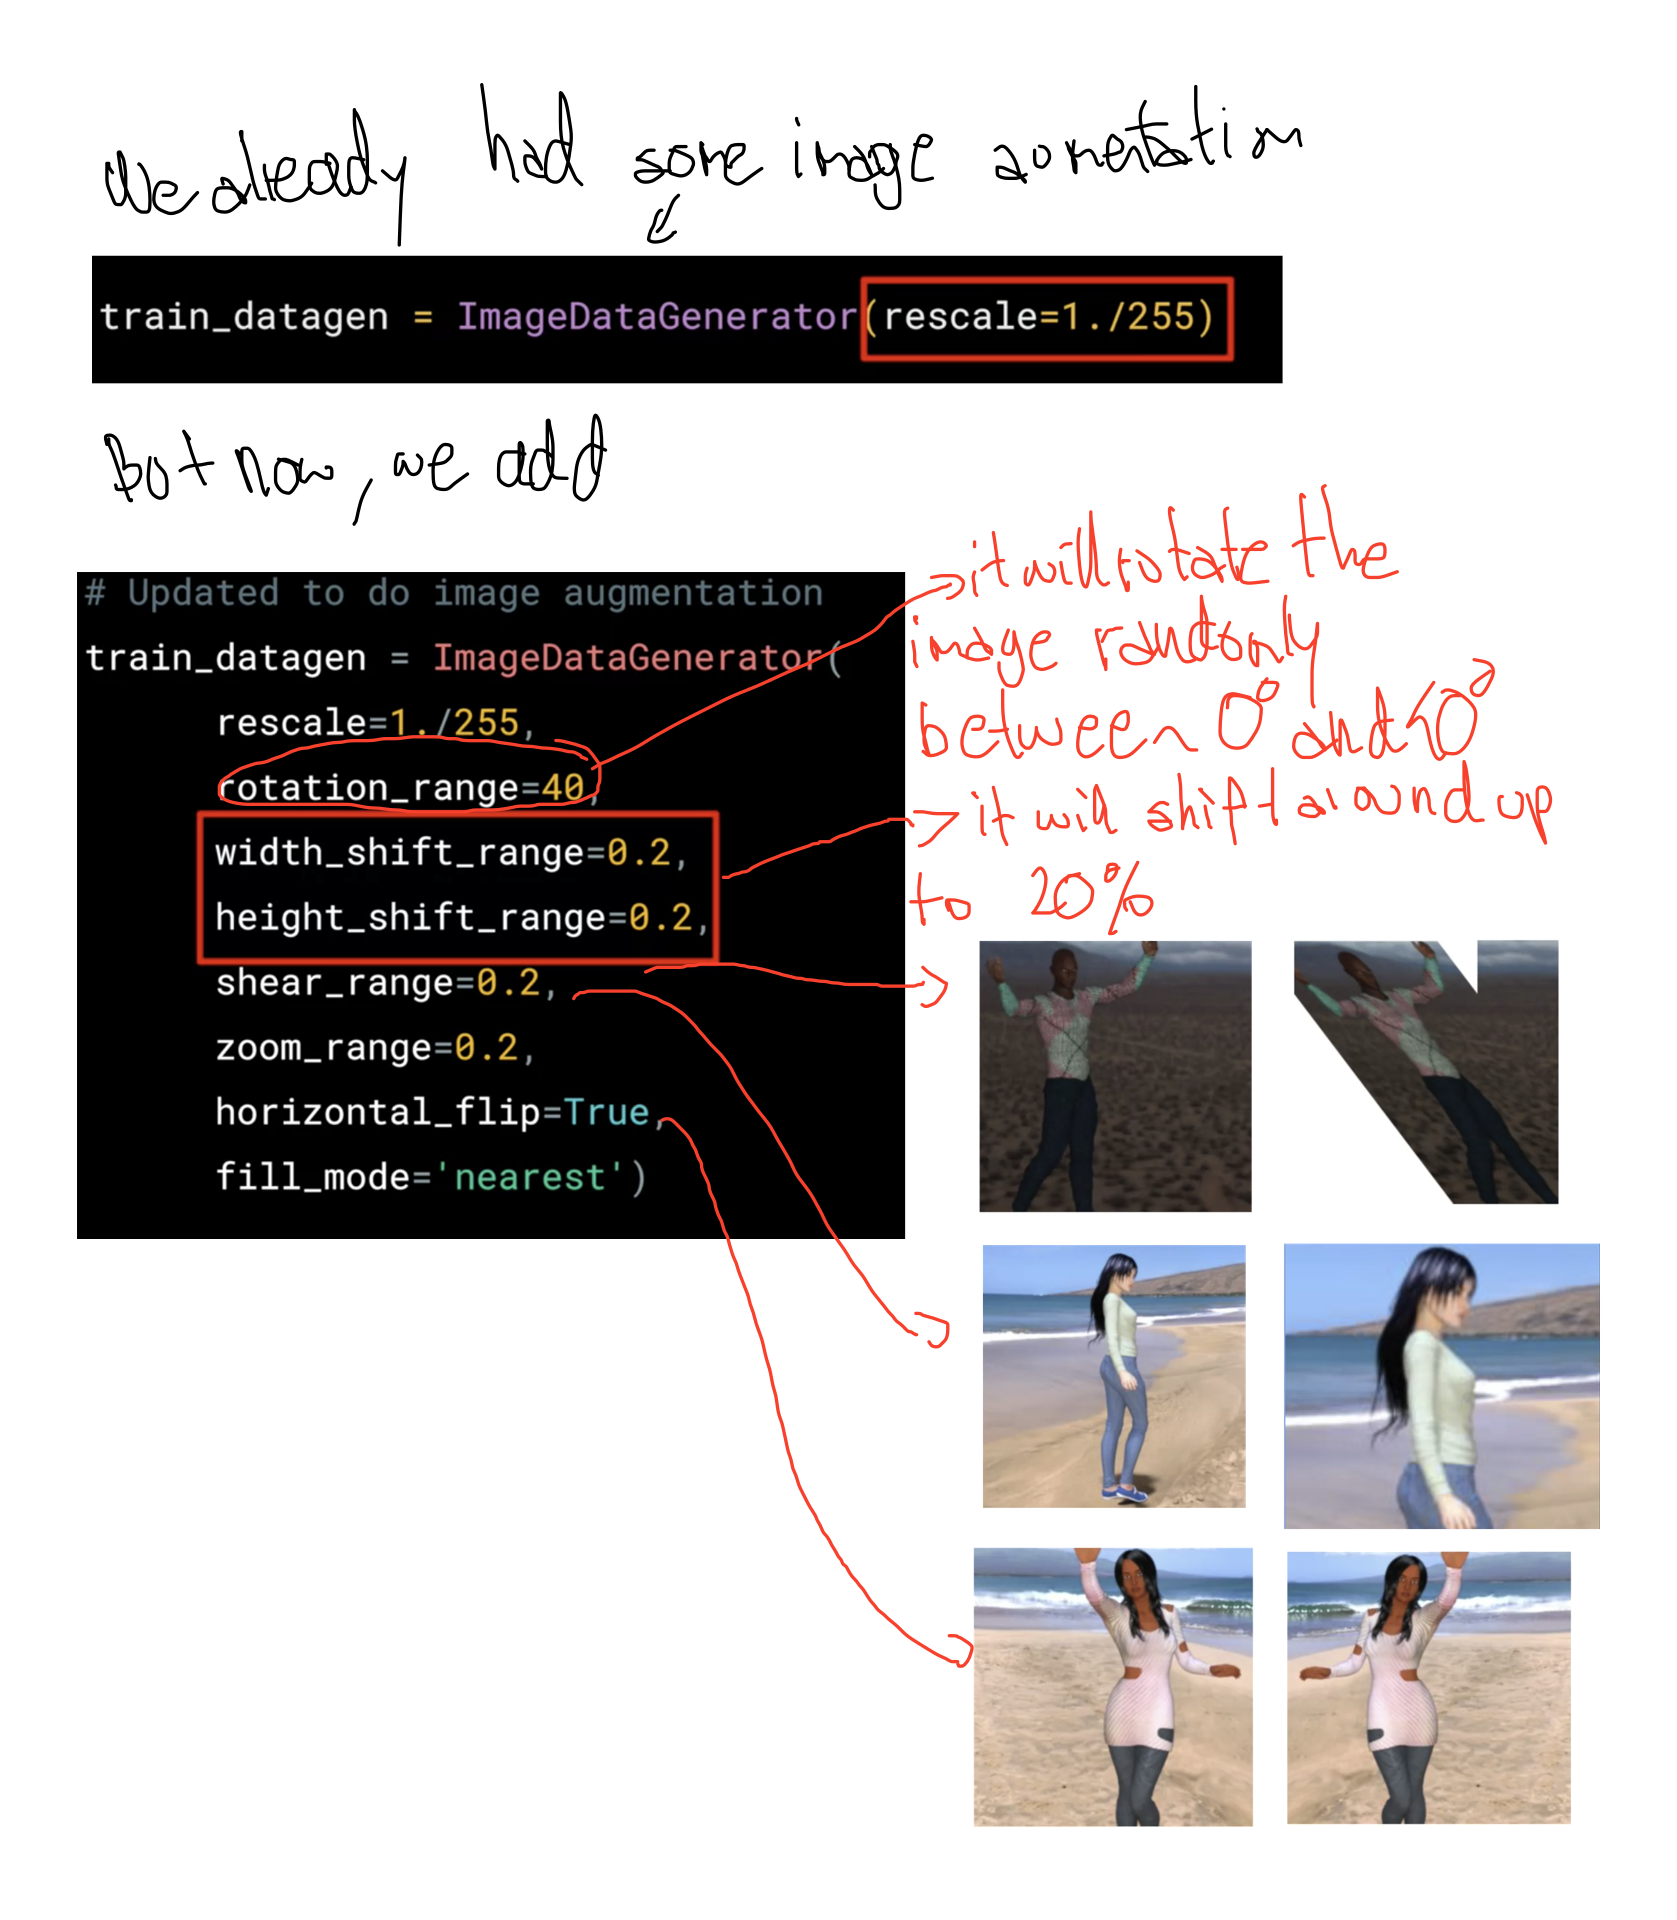 We already had some image aumentation
train_datagen = ImageDataGenerator(rescale=1./255)
But now, we add
# Updated to do image augmentation
train_datagen = ImageDataGenerator(
rescale=1./255,
rotation_range=40,
width_shift_range=0.2,
height_shift_range=0.2,
shear_range=0.2,
zoom_range=0.2,
horizontal_flip=True,
fill_mode='nearest')
it will rotate the
image randomly
between 0° and 40°
it will shift around up
to 20%